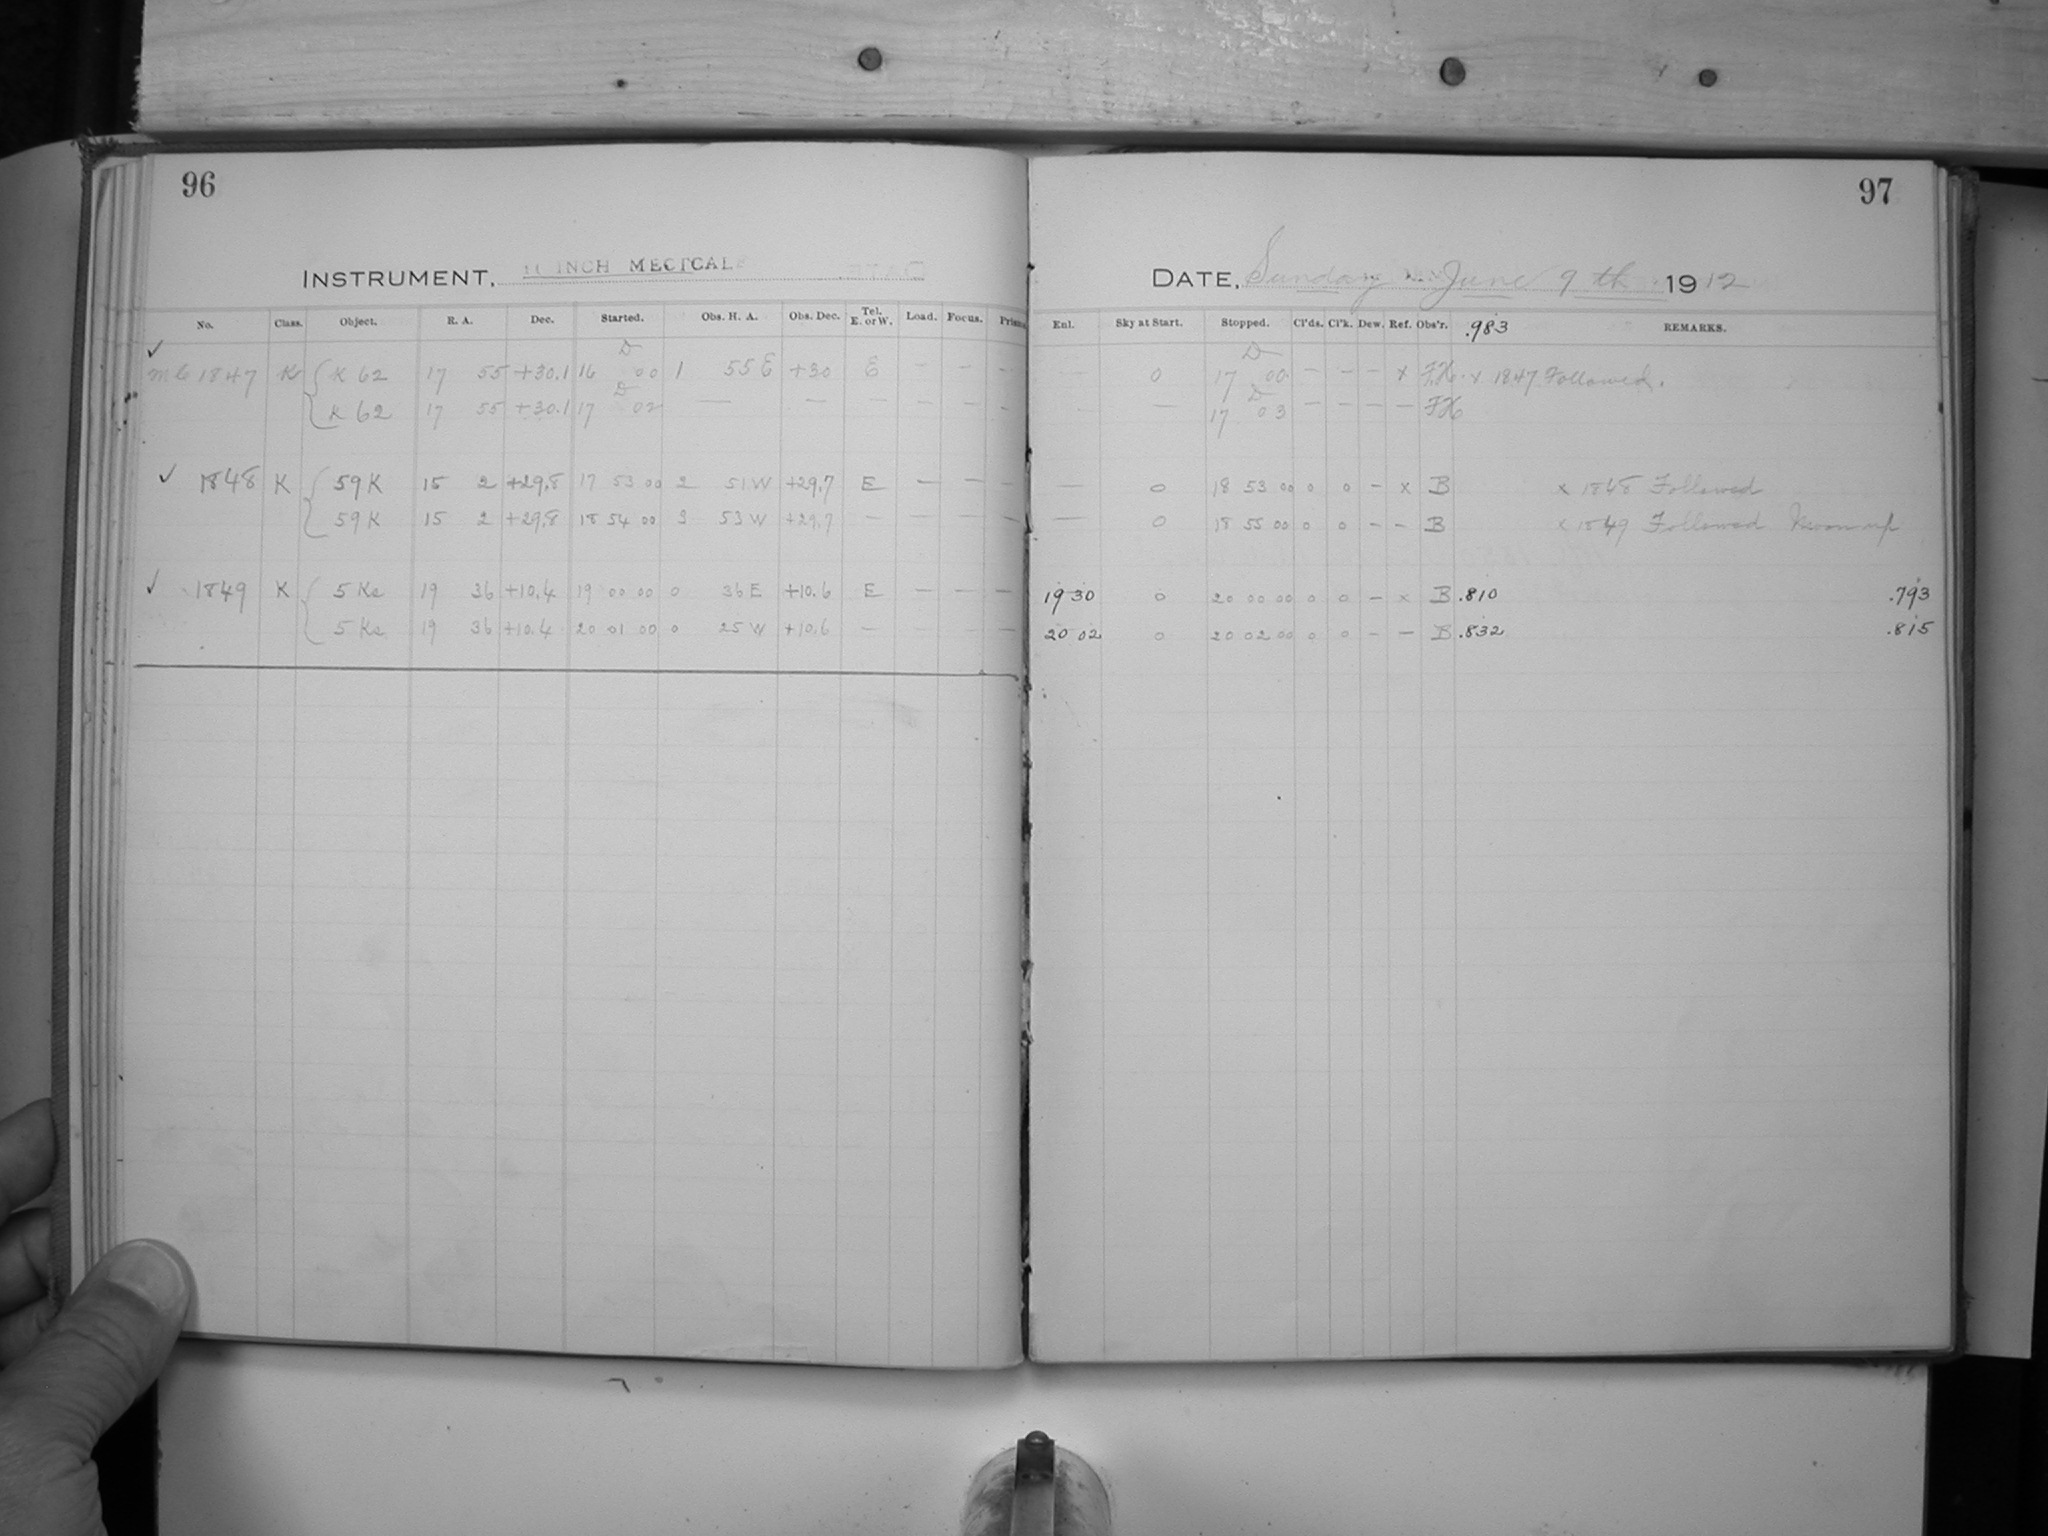 96
INSTRUMENT, INCH METCALF
No. Class. Object. R. A. Dec. Started. Obs. H. A. Obs. Dec. Tel. E. or W. Load. Focus. Prism
✓ D
mc 1847 K { K 62 17 55 +30.1 16 00 1 55 E +30 E — — —
D
K 62 17 55 +30.1 17 02 — — — — — —
✓ 1848 K { 59 K 15 2 +29.8 17 53 00 2 51 W +29.7 E — — —
59 K 15 2 +29.8 18 54 00 3 53 W +29.7 — — — —
✓ 1849 K { 5 Ks 19 36 +10.4 19 00 00 0 36 E +10.6 E — — —
5 Ks 19 36 +10.4 20 01 00 0 25 W +10.6 — — — —
97
DATE, Sunday June 9th 1912
Enl. Sky at Start. Stopped. Cl'ds. Cl'k. Dew. Ref. Obs'r. .983 REMARKS.
D
— 0 17 00 — — — x F.H. x 1847 Followed.
D
— 17 03 — — — — FH
— 0 18 53 00 0 0 — x B x 1848 Followed
— 0 18 55 00 0 0 — — B x 1849 Followed Moon up
19 30 0 20 00 00 0 0 — x B .810 .793
20 02 0 20 02 00 0 0 — — B .832 .815